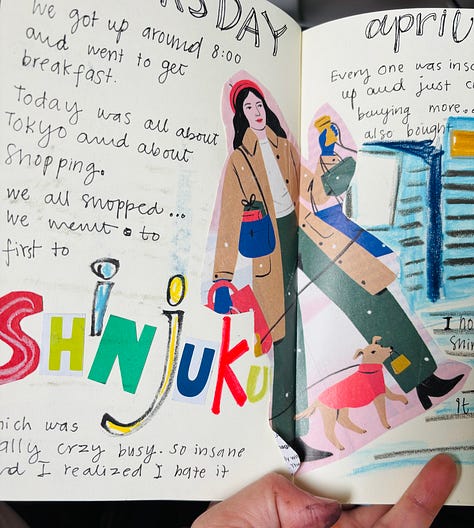 RSDAY
we got up around 8:00
and went to get
breakfast.
Today was all about
Tokyo and about
Shopping.
we all shopped...
we went to
first to
SHiNjUKU
which was
ally crzy busy. so insane
nd I realized I hate it
april
Every one was ins
up and just c
buying more..
also bough
I ho
Shin
it.